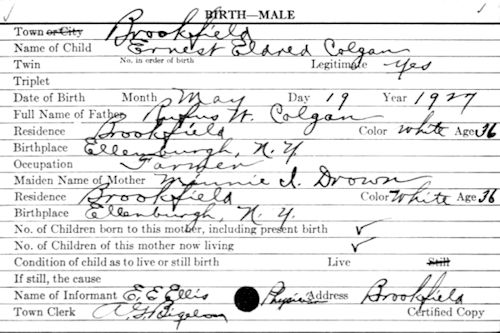 BIRTH—MALE
Town or City Brookfield
Name of Child Ernest Eldred Colgan
Twin No. in order of birth Legitimate Yes
Triplet
Date of Birth Month May Day 19 Year 1927
Full Name of Father Rufus W. Colgan
Residence Brookfield Color White Age 36
Birthplace Ellenburgh, N. Y.
Occupation Farmer
Maiden Name of Mother Minnie I. Drown
Residence Brookfield Color White Age 36
Birthplace Ellenburgh, N. Y.
No. of Children born to this mother, including present birth ✓
No. of Children of this mother now living ✓
Condition of child as to live or still birth Live Still
If still, the cause
Name of Informant E. E. Ellis Physician Address Brookfield
Town Clerk Bigelow Certified Copy